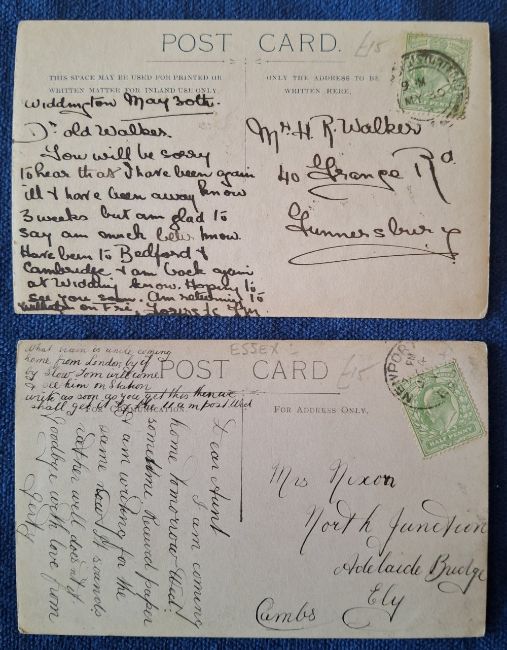 POST CARD.
£15
THIS SPACE MAY BE USED FOR PRINTED OR
WRITTEN MATTER FOR INLAND USE ONLY.
ONLY THE ADDRESS TO BE
WRITTEN HERE.
Widdington May 30th.
Dr old Walker.
You will be sorry
to hear that I have been again
ill & have been away know
3 weeks but am glad to
say am much better know.
Have been to Bedford &
Cambridge & am back again
at Widding know. Hoping to
see you soon. Am returning to
on Fri
Mr H. R. Walker
40 Grange Rd
Gunnersbury
ESSEX
POST CARD
£15
FOR ADDRESS ONLY.
NEWPORT
HALF PENNY
What train is uncle coming
home from London by if
by slow Tom will come
& see him on Station
write as soon as you get this then we
shall get it by the 11 a m post Wed
Dear Aunt
I am coming
home tomorrow Wed:
some paper
I am writing for the
same now It sounds
rather well does'nt it
Goodbye with love from
Mrs Nixon
North Junction
Adelaide Bridge
Ely
Cambs